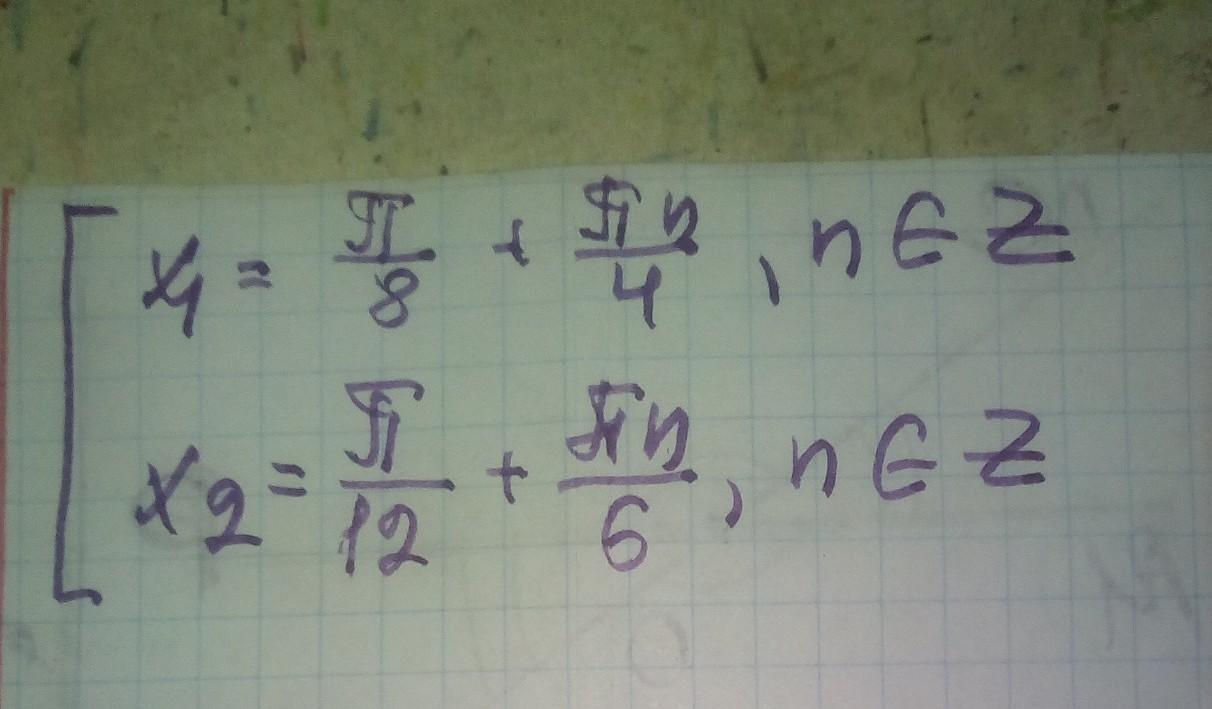 x₁ = π/8 + πn/4, n ∈ Z
x₂ = π/12 + πn/6, n ∈ Z